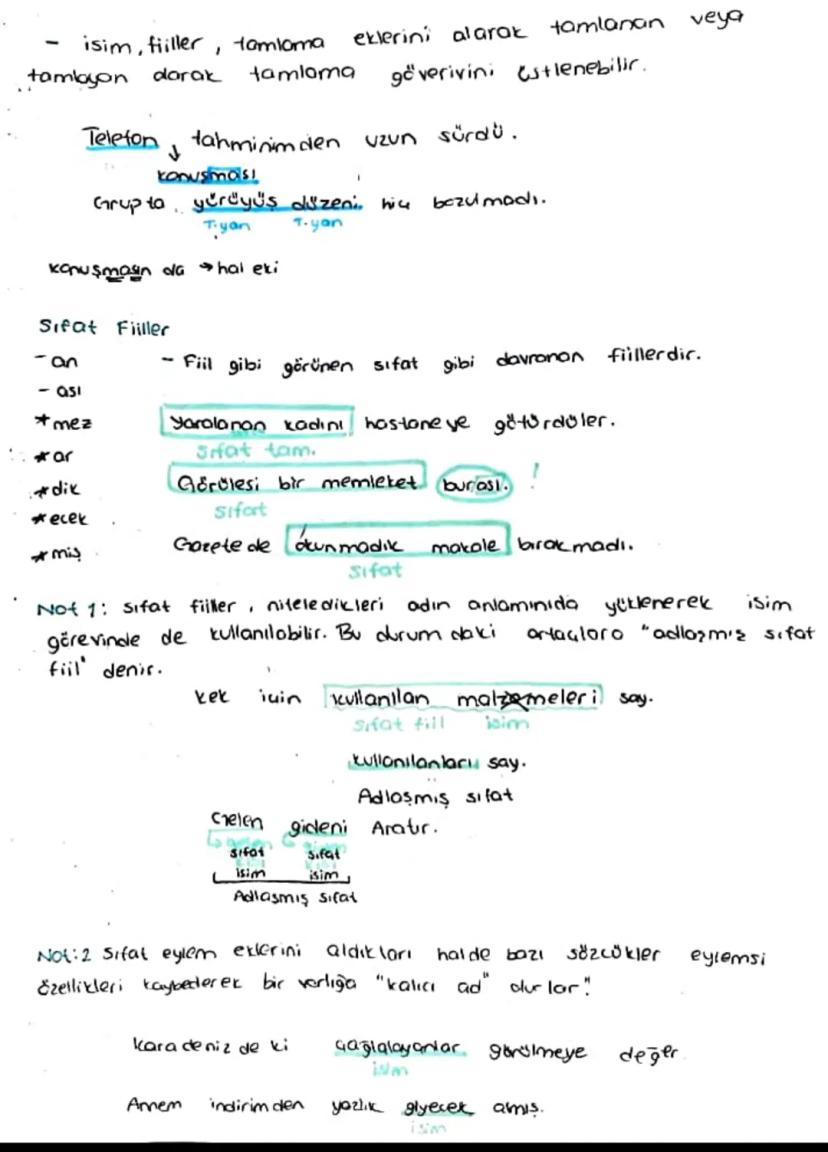 - isim, fiiller, tamlama eklerini alarak tamlanan veya
tamlayan olarak tamlama göverivini üstlenebilir.
Telefon ↓ tahminimden uzun sürdü.
konuşması
Grupta yürüyüş düzeni hiç bozulmadı.
T.yan T.yan
konuşmasın da → hal eki
Sıfat Fiiller
-an - Fiil gibi görünen sıfat gibi davranan fiillerdir.
-ası
*mez Yaralanan kadını hastaneye götürdüler.
sıfat tam.
*ar
Görülesi bir memleket burası. !
*dik
sıfat
*ecek
Gazete de okunmadık makale bırakmadı.
*miş
sıfat
Not 1: sıfat fiiller, niteledikleri adın anlamınıda yüklenerek isim
görevinde de kullanılabilir. Bu durum daki ortaçlara "adlaşmış sıfat
fiil" denir.
kek için kullanılan malzemeleri say.
sıfat fiil isim
kullanılanları say.
Adlaşmış sıfat
Gelen gideni Aratır.
sıfat sıfat
isim isim
Adlaşmış sıfat
Not:2 Sıfat eylem eklerini aldıkları halde bazı sözcükler eylemsi
özellikleri kaybederek bir varlığa "kalıcı ad" olurlar."
Kara deniz de ki çağlalayanlar görülmeye değer
isim
Annem indirimden yazlık giyecek almış.
isim